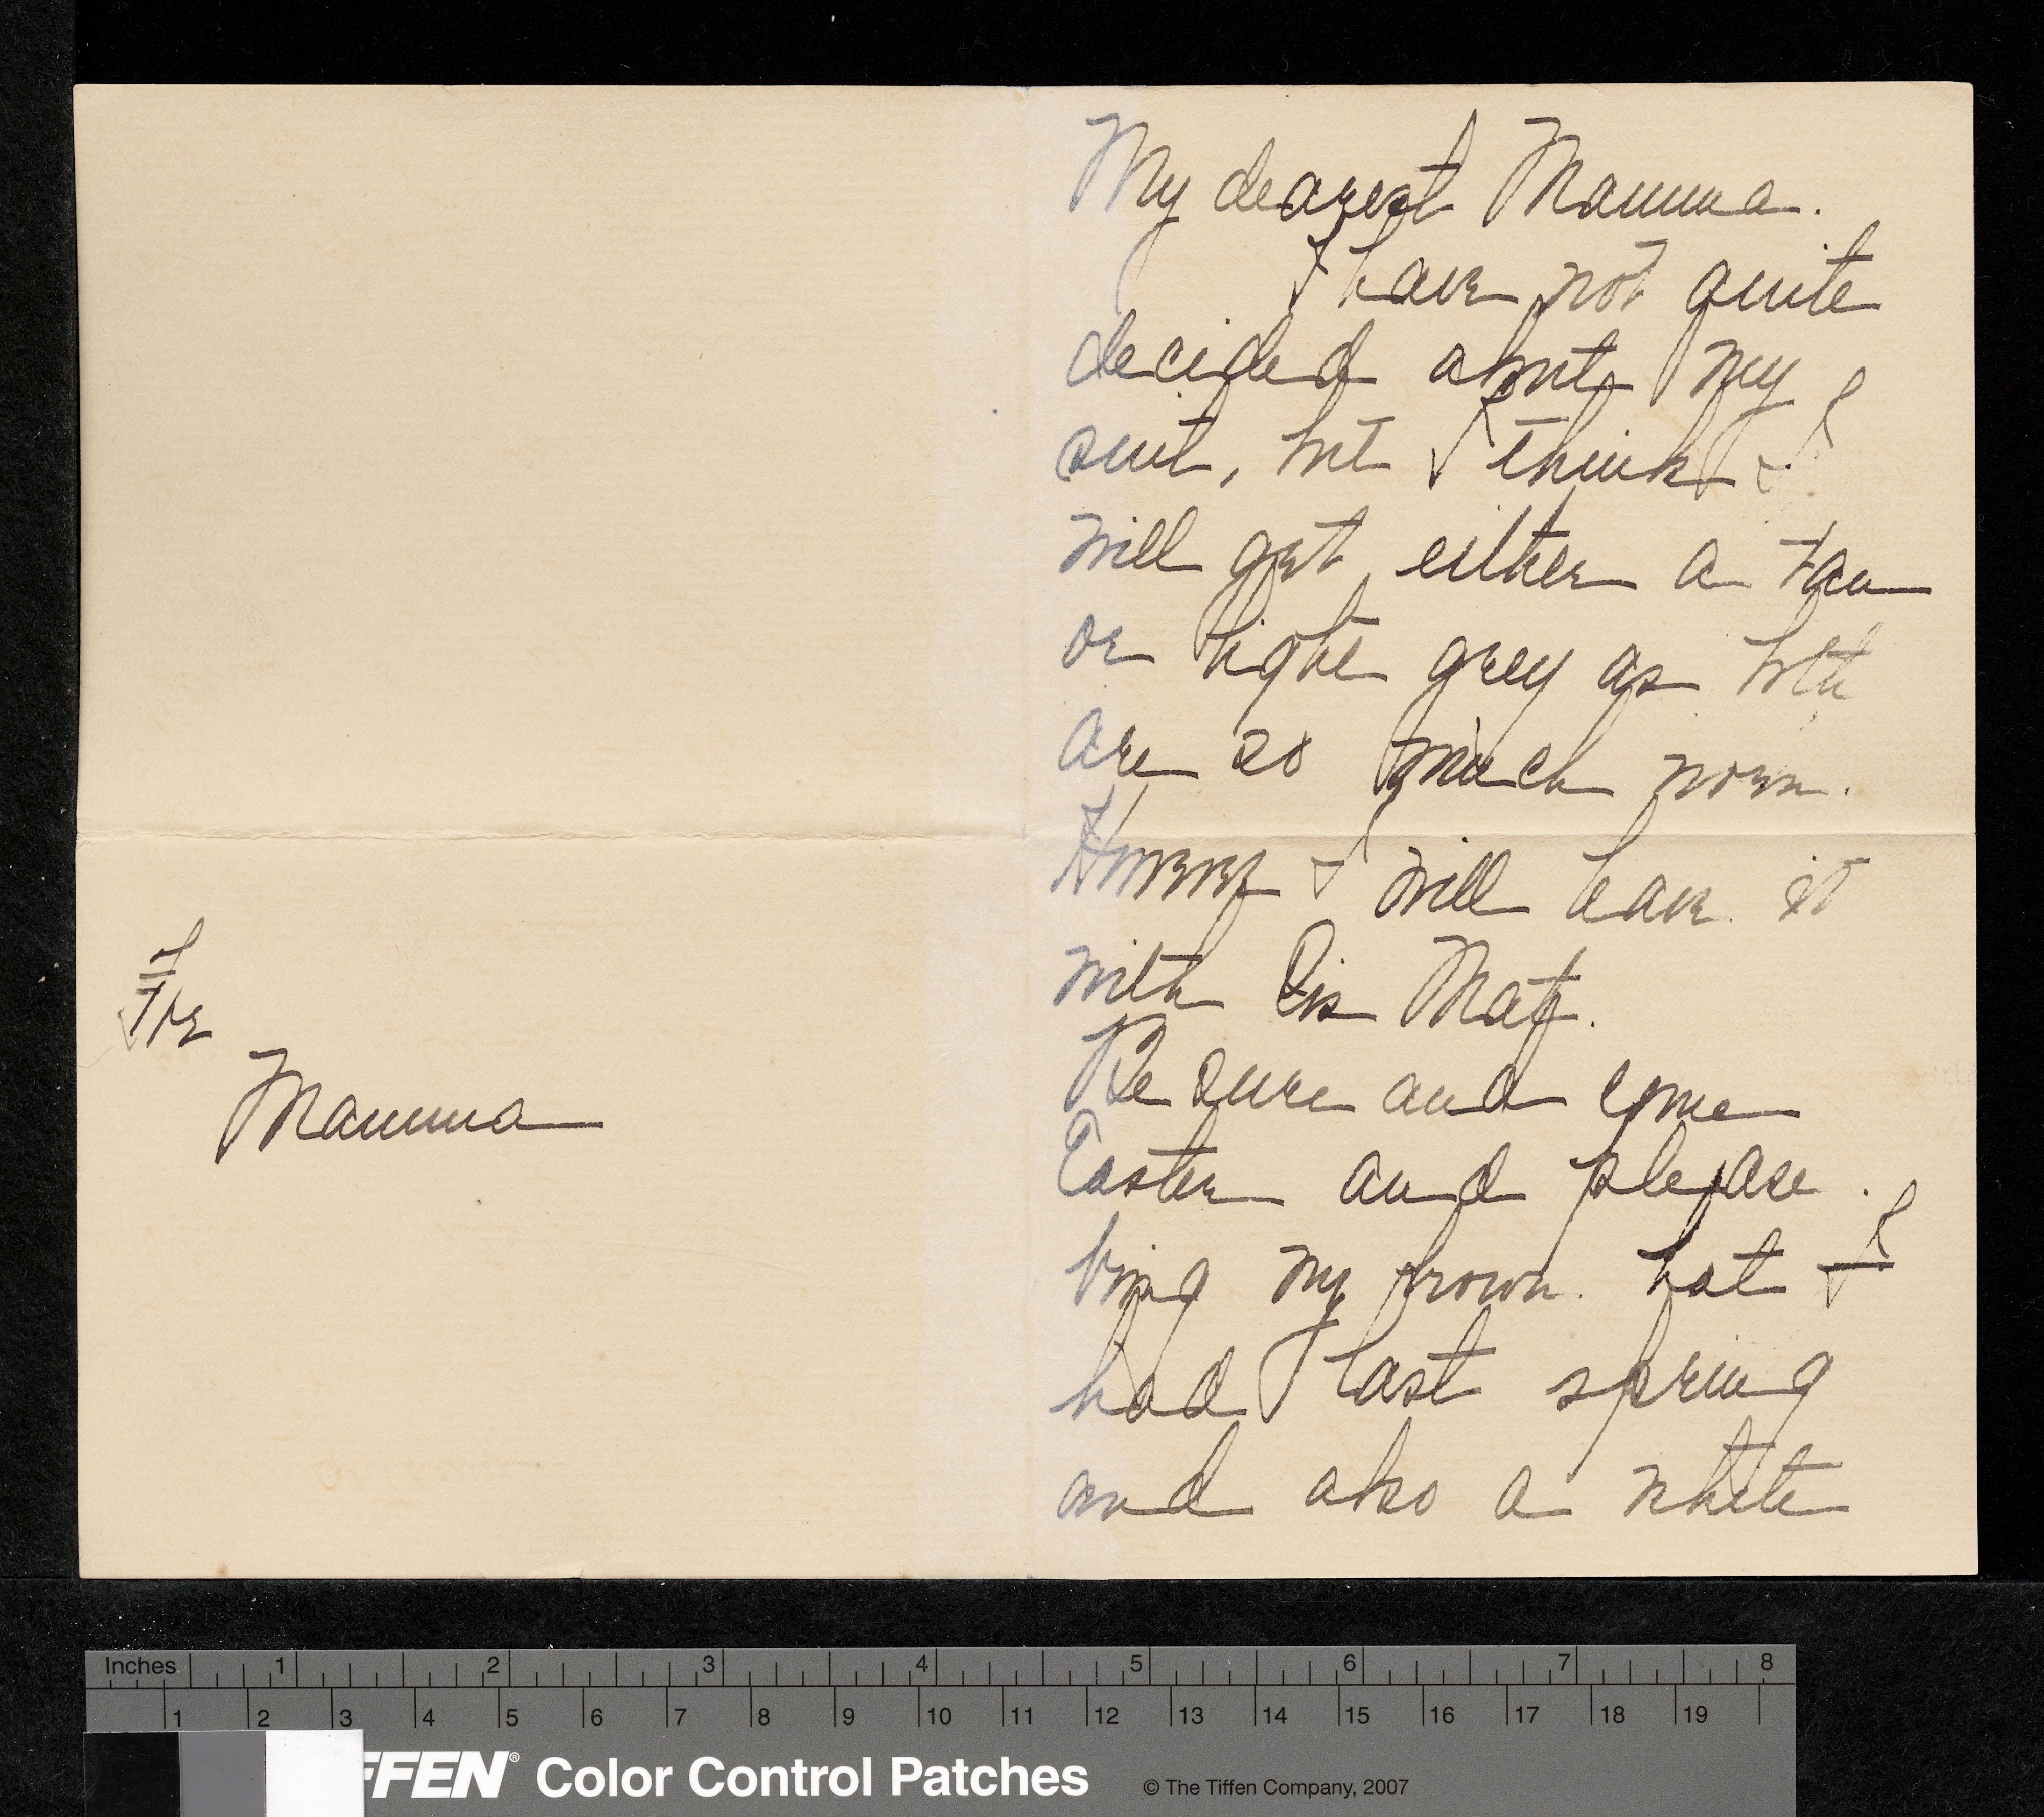 My dearest Mamma.
I have not quite
decided about my
suit, but I think I
will get either a tan
or light grey as both
are so much worn.
However I will leave it
with Sis Mat.
Be sure and come
Easter and please
bring my brown hat I
had last spring
and also a white
Mamma
Inches 1 2 3 4 5 6 7 8
1 2 3 4 5 6 7 8 9 10 11 12 13 14 15 16 17 18 19
FFEN® Color Control Patches © The Tiffen Company, 2007